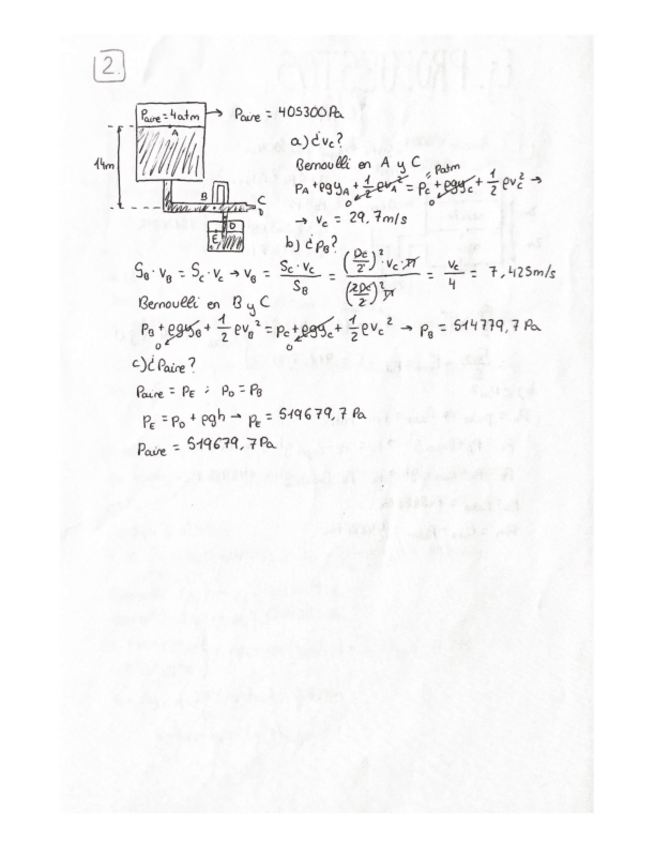 2.
Paire = 4atm → Paire = 405300 Pa
A
14m
B
C
D
D
E
a) ¿vc?
Bernoulli en A y C
PA + ρgyA + 1/2 ρvA² = Pc + ρgyc + 1/2 ρvc² →
= Patm
0 0
→ vc = 29,7 m/s
b) ¿PB?
SB · vB = Sc · vc → vB = Sc · vc / SB = (Dc/2)² · vc · π / (2Dc/2)² π = vc/4 = 7,425 m/s
Bernoulli en B y C
PB + ρgyB + 1/2 ρvB² = Pc + ρgyc + 1/2 ρvc² → PB = 514779,7 Pa
0 0
c) ¿Paire?
Paire = PE ; PD = PB
PE = PD + ρgh → PE = 519679,7 Pa
Paire = 519679,7 Pa